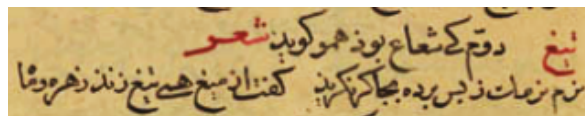 تیغ دوم کی شعاع بوذ همو کویذ شعر
نرم نرمات ز پس برده بجاکر نکرید کفت از میغ همی تیغ زند زهره و ماا